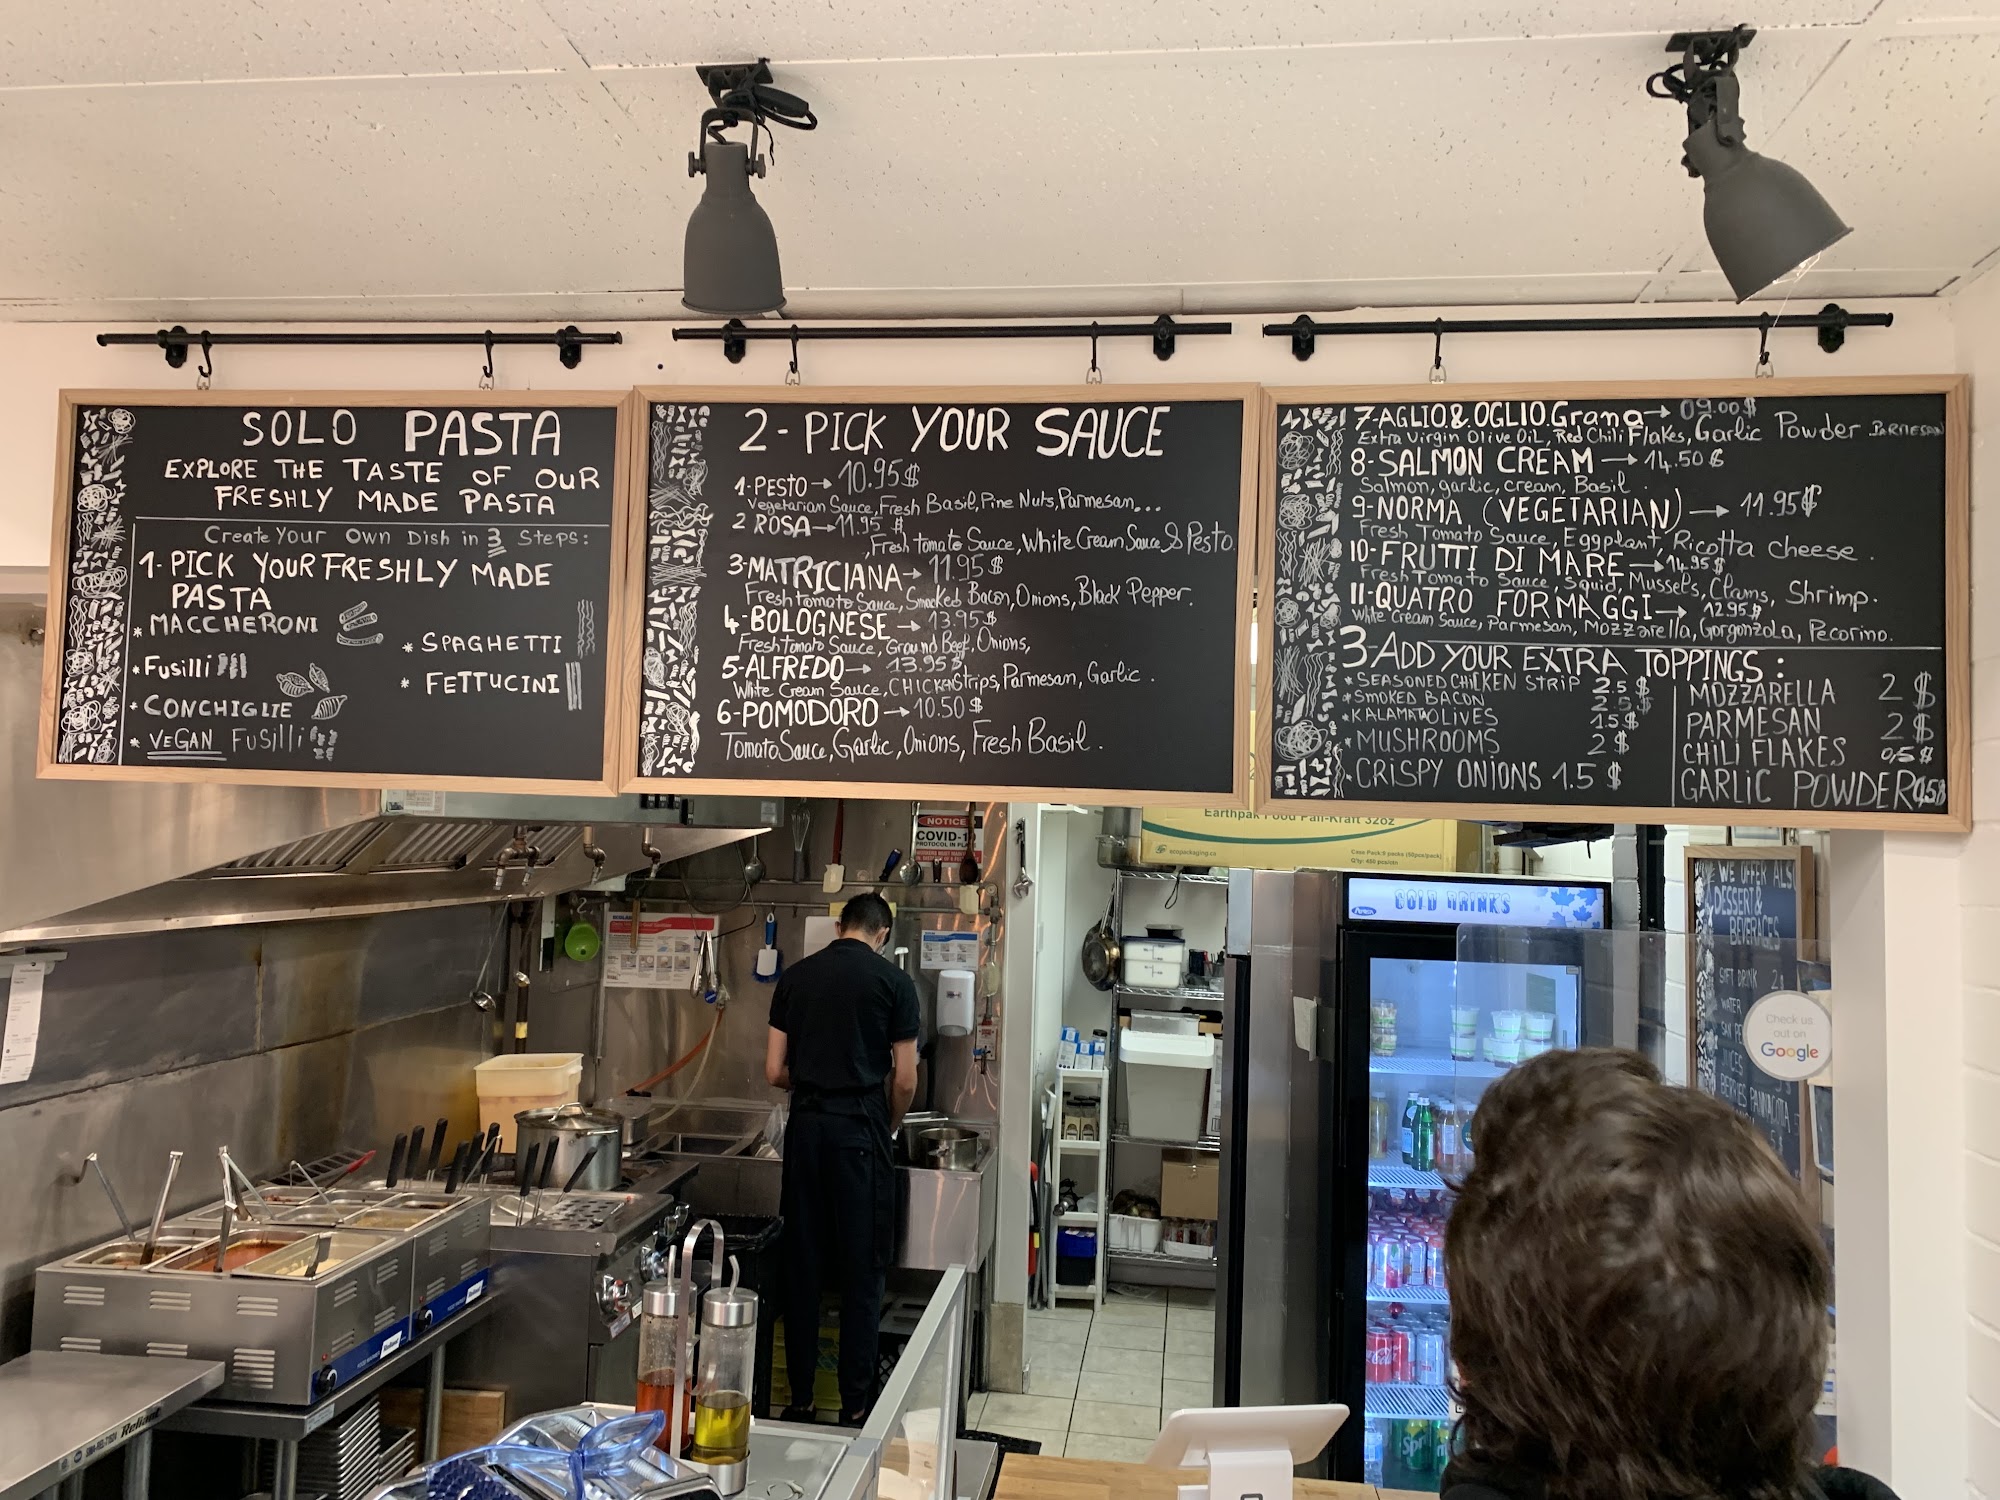 SOLO PASTA
EXPLORE THE TASTE OF OUR
FRESHLY MADE PASTA
Create Your Own Dish in 3 Steps:
1-PICK YOUR FRESHLY MADE
PASTA
* MACCHERONI
* Fusilli
* CONCHIGLIE
* VEGAN Fusilli
* SPAGHETTI
* FETTUCINI
2-PICK YOUR SAUCE
1-PESTO→10.95$
Vegetarian Sauce, Fresh Basil, Pine Nuts, Parmesan...
2 ROSA→11.95$
, Fresh tomato Sauce, White Cream Sauce & Pesto.
3-MATRICIANA→11.95$
Fresh tomato Sauce, Smocked Bacon, Onions, Black Pepper.
4-BOLOGNESE→13.95$
Fresh tomato Sauce, Ground Beef, Onions,
5-ALFREDO→13.95$
White Cream Sauce, CHICKEN Strips, Parmesan, Garlic.
6-POMODORO→10.50$
Tomato Sauce, Garlic, Onions, Fresh Basil.
7-AGLIO & OGLIO Grana→09.00$
Extra Virgin Olive OiL, Red Chili Flakes, Garlic Powder PARMESAN
8-SALMON CREAM→14.50$
Salmon, garlic, cream, Basil.
9-NORMA (VEGETARIAN)→11.95$
Fresh Tomato Sauce, Eggplant, Ricotta cheese.
10-FRUTTI DI MARE→14.95$
Fresh Tomato Sauce, Squid, Mussels, Clams, Shrimp.
11-QUATRO FORMAGGI→12.95$
White Cream Sauce, Parmesan, Mozzarella, Gorgonzola, Pecorino.
3-ADD YOUR EXTRA TOPPINGS:
*SEASONED CHICKEN STRIP 2.5$
*SMOKED BACON 2.5$
*KALAMATA OLIVES 1.5$
*MUSHROOMS 2$
*CRISPY ONIONS 1.5$
MOZZARELLA 2$
PARMESAN 2$
CHILI FLAKES 0,5$
GARLIC POWDER 0,5$
NOTICE
COVID-19
PROTOCOL IN PLACE
Earthpak Food Pail-Kraft 32oz
ecopackaging.ca
Case Pack:9 packs (50pcs/pack)
Q'ty: 450 pcs/ctn
COLD DRINKS
WE OFFER ALSO
DESSERT &
BEVERAGES
SOFT DRINK 2$
WATER
SAN PE
JUICES
BERRIES PANNACOTTA
5$
Check us
out on
Google
Reliant
Coca-Cola
Sprite